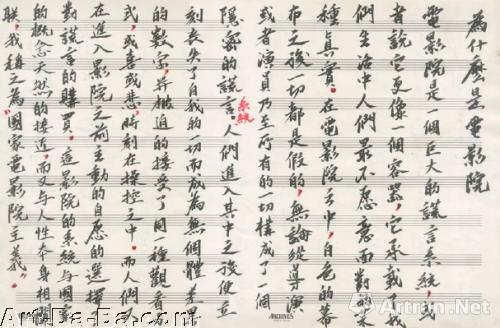 為什麼是電影院
電影院是一個巨大的謊言系統，或
者說它更像一個容器，它承載了我
們生活中人們最不愿意面對的某
種真實。在電影院之中，白色的幕
布之後一切都是假的，無論從導演
或者演員乃至所有的一切構成了一個
隱密的謊言系統。人們進入其中之後便立
刻喪失了自我的一切而成為無個體差異
的數字，并被迫的接受了同種觀看方
式，或喜或悲，時刻在操控之中。而人們
在進入影院之前主動的自愿的選擇了
對謊言的購買。這影院的系統与國家
的概念天然的接近，而又与人性本身相關
聯，我稱之為“國家電影院主義”。
ARCHIVES
Artron.Net